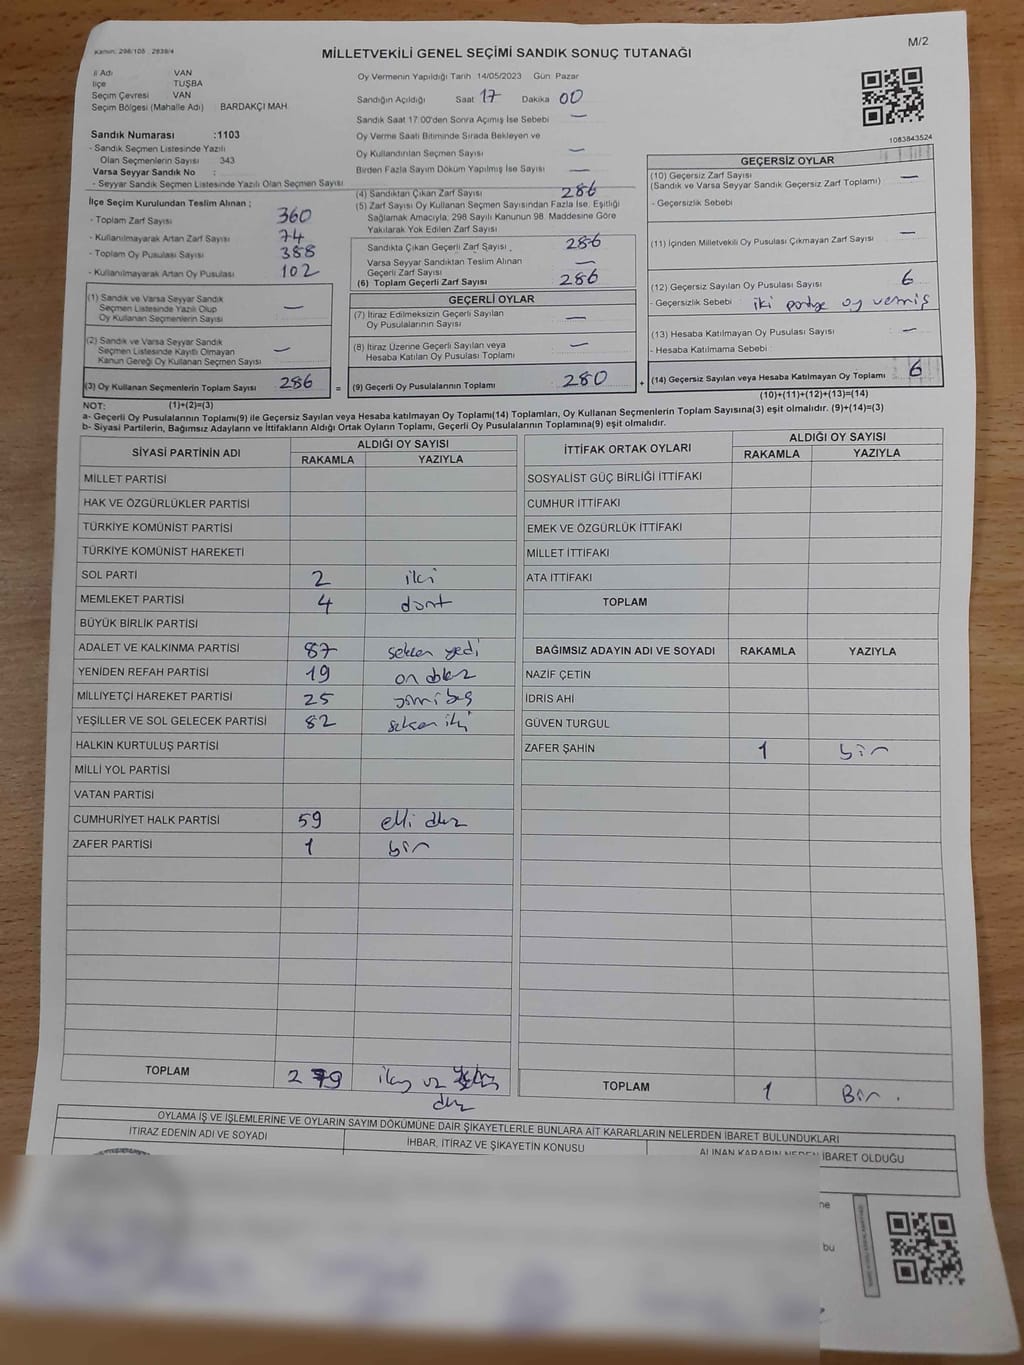 Kanun: 298/105 , 2839/4
MİLLETVEKİLİ GENEL SEÇİMİ SANDIK SONUÇ TUTANAĞI
M/2
İl Adı : VAN
İlçe : TUŞBA
Seçim Çevresi : VAN
Seçim Bölgesi (Mahalle Adı) : BARDAKÇI MAH.
Sandık Numarası :1103
- Sandık Seçmen Listesinde Yazılı
Olan Seçmenlerin Sayısı : 343
Varsa Seyyar Sandık No :
- Seyyar Sandık Seçmen Listesinde Yazılı Olan Seçmen Sayısı
İlçe Seçim Kurulundan Teslim Alınan ;
- Toplam Zarf Sayısı : 360
- Kullanılmayarak Artan Zarf Sayısı : 74
- Toplam Oy Pusulası Sayısı : 388
- Kullanılmayarak Artan Oy Pusulası : 102
(1) Sandık ve Varsa Seyyar Sandık
Seçmen Listesinde Yazılı Olup
Oy Kullanan Seçmenlerin Sayısı : —
(2) Sandık ve Varsa Seyyar Sandık
Seçmen Listesinde Kayıtlı Olmayan
Kanun Gereği Oy Kullanan Seçmen Sayısı : —
(3) Oy Kullanan Seçmenlerin Toplam Sayısı 286 =
(1)+(2)=(3)
Oy Vermenin Yapıldığı Tarih : 14/05/2023 Gün: Pazar
Sandığın Açıldığı Saat 17 Dakika 00
Sandık Saat 17:00'den Sonra Açımış İse Sebebi : —
Oy Verme Saati Bitiminde Sırada Bekleyen ve
Oy Kullandırılan Seçmen Sayısı : —
Birden Fazla Sayım Döküm Yapılmış İse Sayısı : —
(4) Sandıktan Çıkan Zarf Sayısı : 286
(5) Zarf Sayısı Oy Kullanan Seçmen Sayısından Fazla İse, Eşitliği
Sağlamak Amacıyla, 298 Sayılı Kanunun 98. Maddesine Göre
Yakılarak Yok Edilen Zarf Sayısı :
Sandıkta Çıkan Geçerli Zarf Sayısı : 286
Varsa Seyyar Sandıktan Teslim Alınan
Geçerli Zarf Sayısı : —
(6) Toplam Geçerli Zarf Sayısı : 286
GEÇERLİ OYLAR
(7) İtiraz Edilmeksizin Geçerli Sayılan
Oy Pusulalarının Sayısı : —
(8) İtiraz Üzerine Geçerli Sayılan veya
Hesaba Katılan Oy Pusulası Toplamı : —
(9) Geçerli Oy Pusulalarının Toplamı : 280 +
1083843524
GEÇERSİZ OYLAR
(10) Geçersiz Zarf Sayısı
(Sandık ve Varsa Seyyar Sandık Geçersiz Zarf Toplamı) : —
- Geçersizlik Sebebi :
(11) İçinden Milletvekili Oy Pusulası Çıkmayan Zarf Sayısı : —
(12) Geçersiz Sayılan Oy Pusulası Sayısı : 6
- Geçersizlik Sebebi : iki partiye oy vermiş
(13) Hesaba Katılmayan Oy Pusulası Sayısı : —
- Hesaba Katılmama Sebebi :
(14) Geçersiz Sayılan veya Hesaba Katılmayan Oy Toplamı : 6
(10)+(11)+(12)+(13)=(14)
NOT:
a- Geçerli Oy Pusulalarının Toplamı(9) ile Geçersiz Sayılan veya Hesaba katılmayan Oy Toplamı(14) Toplamları, Oy Kullanan Seçmenlerin Toplam Sayısına(3) eşit olmalıdır. (9)+(14)=(3)
b- Siyasi Partilerin, Bağımsız Adayların ve İttifakların Aldığı Ortak Oyların Toplamı, Geçerli Oy Pusulalarının Toplamına(9) eşit olmalıdır.
SİYASİ PARTİNİN ADI ALDIĞI OY SAYISI
RAKAMLA YAZIYLA
MİLLET PARTİSİ
HAK VE ÖZGÜRLÜKLER PARTİSİ
TÜRKİYE KOMÜNİST PARTİSİ
TÜRKİYE KOMÜNİST HAREKETİ
SOL PARTİ 2 iki
MEMLEKET PARTİSİ 4 dört
BÜYÜK BİRLİK PARTİSİ
ADALET VE KALKINMA PARTİSİ 87 seksen yedi
YENİDEN REFAH PARTİSİ 19 on dokuz
MİLLİYETÇİ HAREKET PARTİSİ 25 yirmi beş
YEŞİLLER VE SOL GELECEK PARTİSİ 82 seksen iki
HALKIN KURTULUŞ PARTİSİ
MİLLİ YOL PARTİSİ
VATAN PARTİSİ
CUMHURİYET HALK PARTİSİ 59 elli dokuz
ZAFER PARTİSİ 1 bir
TOPLAM 279 iki yüz yetmiş
dokuz
İTTİFAK ORTAK OYLARI ALDIĞI OY SAYISI
RAKAMLA YAZIYLA
SOSYALİST GÜÇ BİRLİĞİ İTTİFAKI
CUMHUR İTTİFAKI
EMEK VE ÖZGÜRLÜK İTTİFAKI
MİLLET İTTİFAKI
ATA İTTİFAKI
TOPLAM
BAĞIMSIZ ADAYIN ADI VE SOYADI RAKAMLA YAZIYLA
NAZİF ÇETİN
İDRİS AHİ
GÜVEN TURGUL
ZAFER ŞAHİN 1 bir
TOPLAM 1 Bir .
OYLAMA İŞ VE İŞLEMLERİNE VE OYLARIN SAYIM DÖKÜMÜNE DAİR ŞİKAYETLERLE BUNLARA AİT KARARLARIN NELERDEN İBARET BULUNDUKLARI
İTİRAZ EDENİN ADI VE SOYADI İHBAR, İTİRAZ VE ŞİKAYETİN KONUSU ALINAN KARARIN NEDEN İBARET OLDUĞU
ne
bu